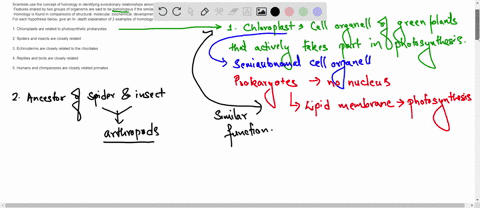 Scientists use the concept of homology in identifying evolutionary relationships among
Features shared by two groups of organisms are said to be homologous if the similar
Homology is found in comparisons of structural, molecular, biochemical, development
For each hypothesis below, give an in depth explanation of 2 examples of homology
1. Chloroplasts are related to photosynthetic prokaryotes
2. Spiders and insects are closely related
3. Echinoderms are closely related to the chordates
4. Reptiles and birds are closely related
5. Humans and chimpanzees are closely related primates
1. Chloroplast → Cell organell & green plants
that actively takes part in photosynthesis.
→ Semiautonomal cell organell
Prokaryotes → no nucleus
→ Lipid membrane → photosynthesis
Similar
function.
2. Ancestor & spider & insect
arthropods